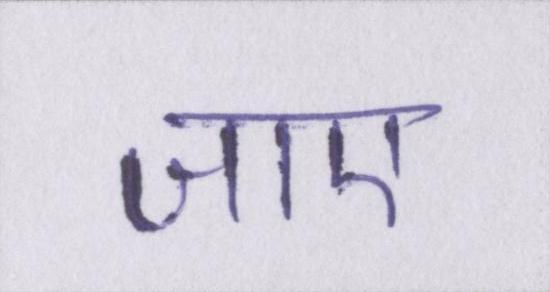 जाए